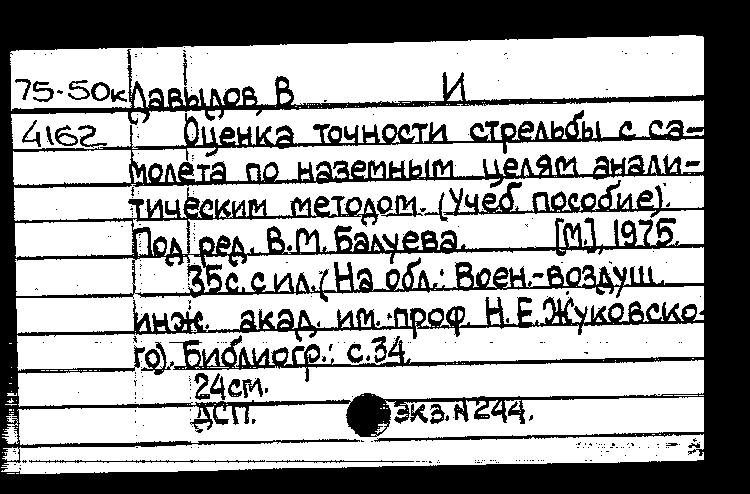 75-50к Давыдов, В И
4162 Оценка точности стрельбы с са-
молета по наземным целям анали-
тическим методом. (Учеб. пособие).
Под ред. В.М. Балуева. [М.], 1975.
35с. с ил. (На обл.: Воен.-воздуш.
инж. акад. им. проф. Н.Е. Жуковско-
го). Библиогр.: с.34.
24см.
ДСП. экз. № 244.